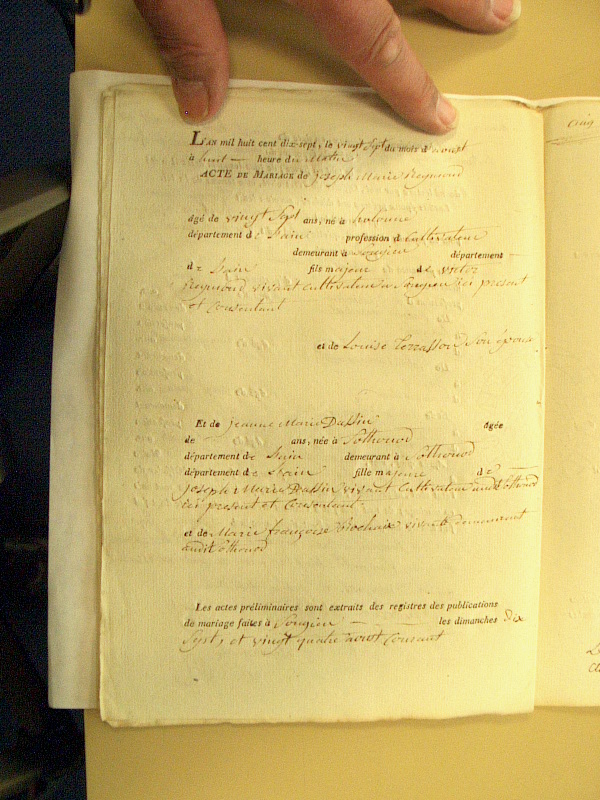 L'AN mil huit cent dix-sept, le vingt Sept du mois d'aoust
à huit — heure du Matin
ACTE DE MARIAGE de joseph Marie Reymond
âgé de vingt Sept ans, né à
département de Lain profession de Cultivateur
demeurant à Songieu département
de Lain fils majeur de victor
Reymond vivant Cultivateur a Songieu ici present
et Consentant
et de Louise Terrasson Son épouse
Et de jeanne Marie Dassin âgée
de ans, née à Sothonod
département de Lain demeurant à Sothonod
département de Lain fille majeure de
joseph Marie Dassin vivant Cultivateur audit Sothonod
ici present et Consentant
et de Marie françoise Brochaix vivante demeurant
audit Sothonod
Les actes préliminaires sont extraits des registres des publications
de mariage faites à Songieu — — les dimanches Dix
Sept, et vingt quatre aout Courant
Cinq